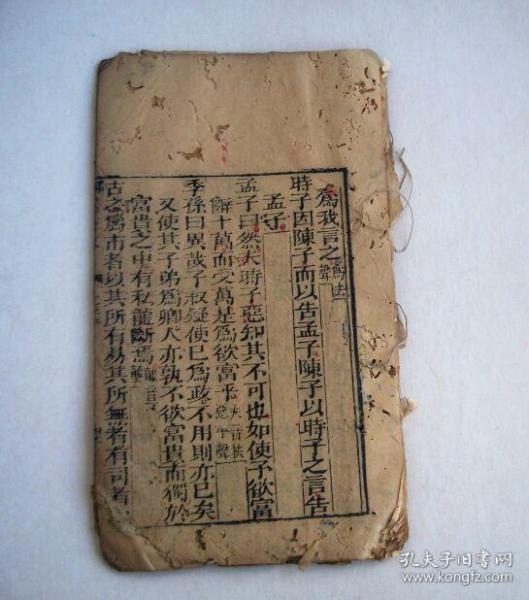 為我言之為去聲
時子因陳子而以告孟子陳子以時子之言告
孟子
孟子曰然夫時子惡知其不可也如使予欲富
辭十萬而受萬是為欲富乎夫音扶惡平聲
季孫曰異哉子叔疑使己為政不用則亦已矣
又使其子弟為卿人亦孰不欲富貴而獨於
富貴之中有私龍斷焉龍音
古之為市者以其所有易其所無者有司者
孔夫子旧书网
www.kongfz.com